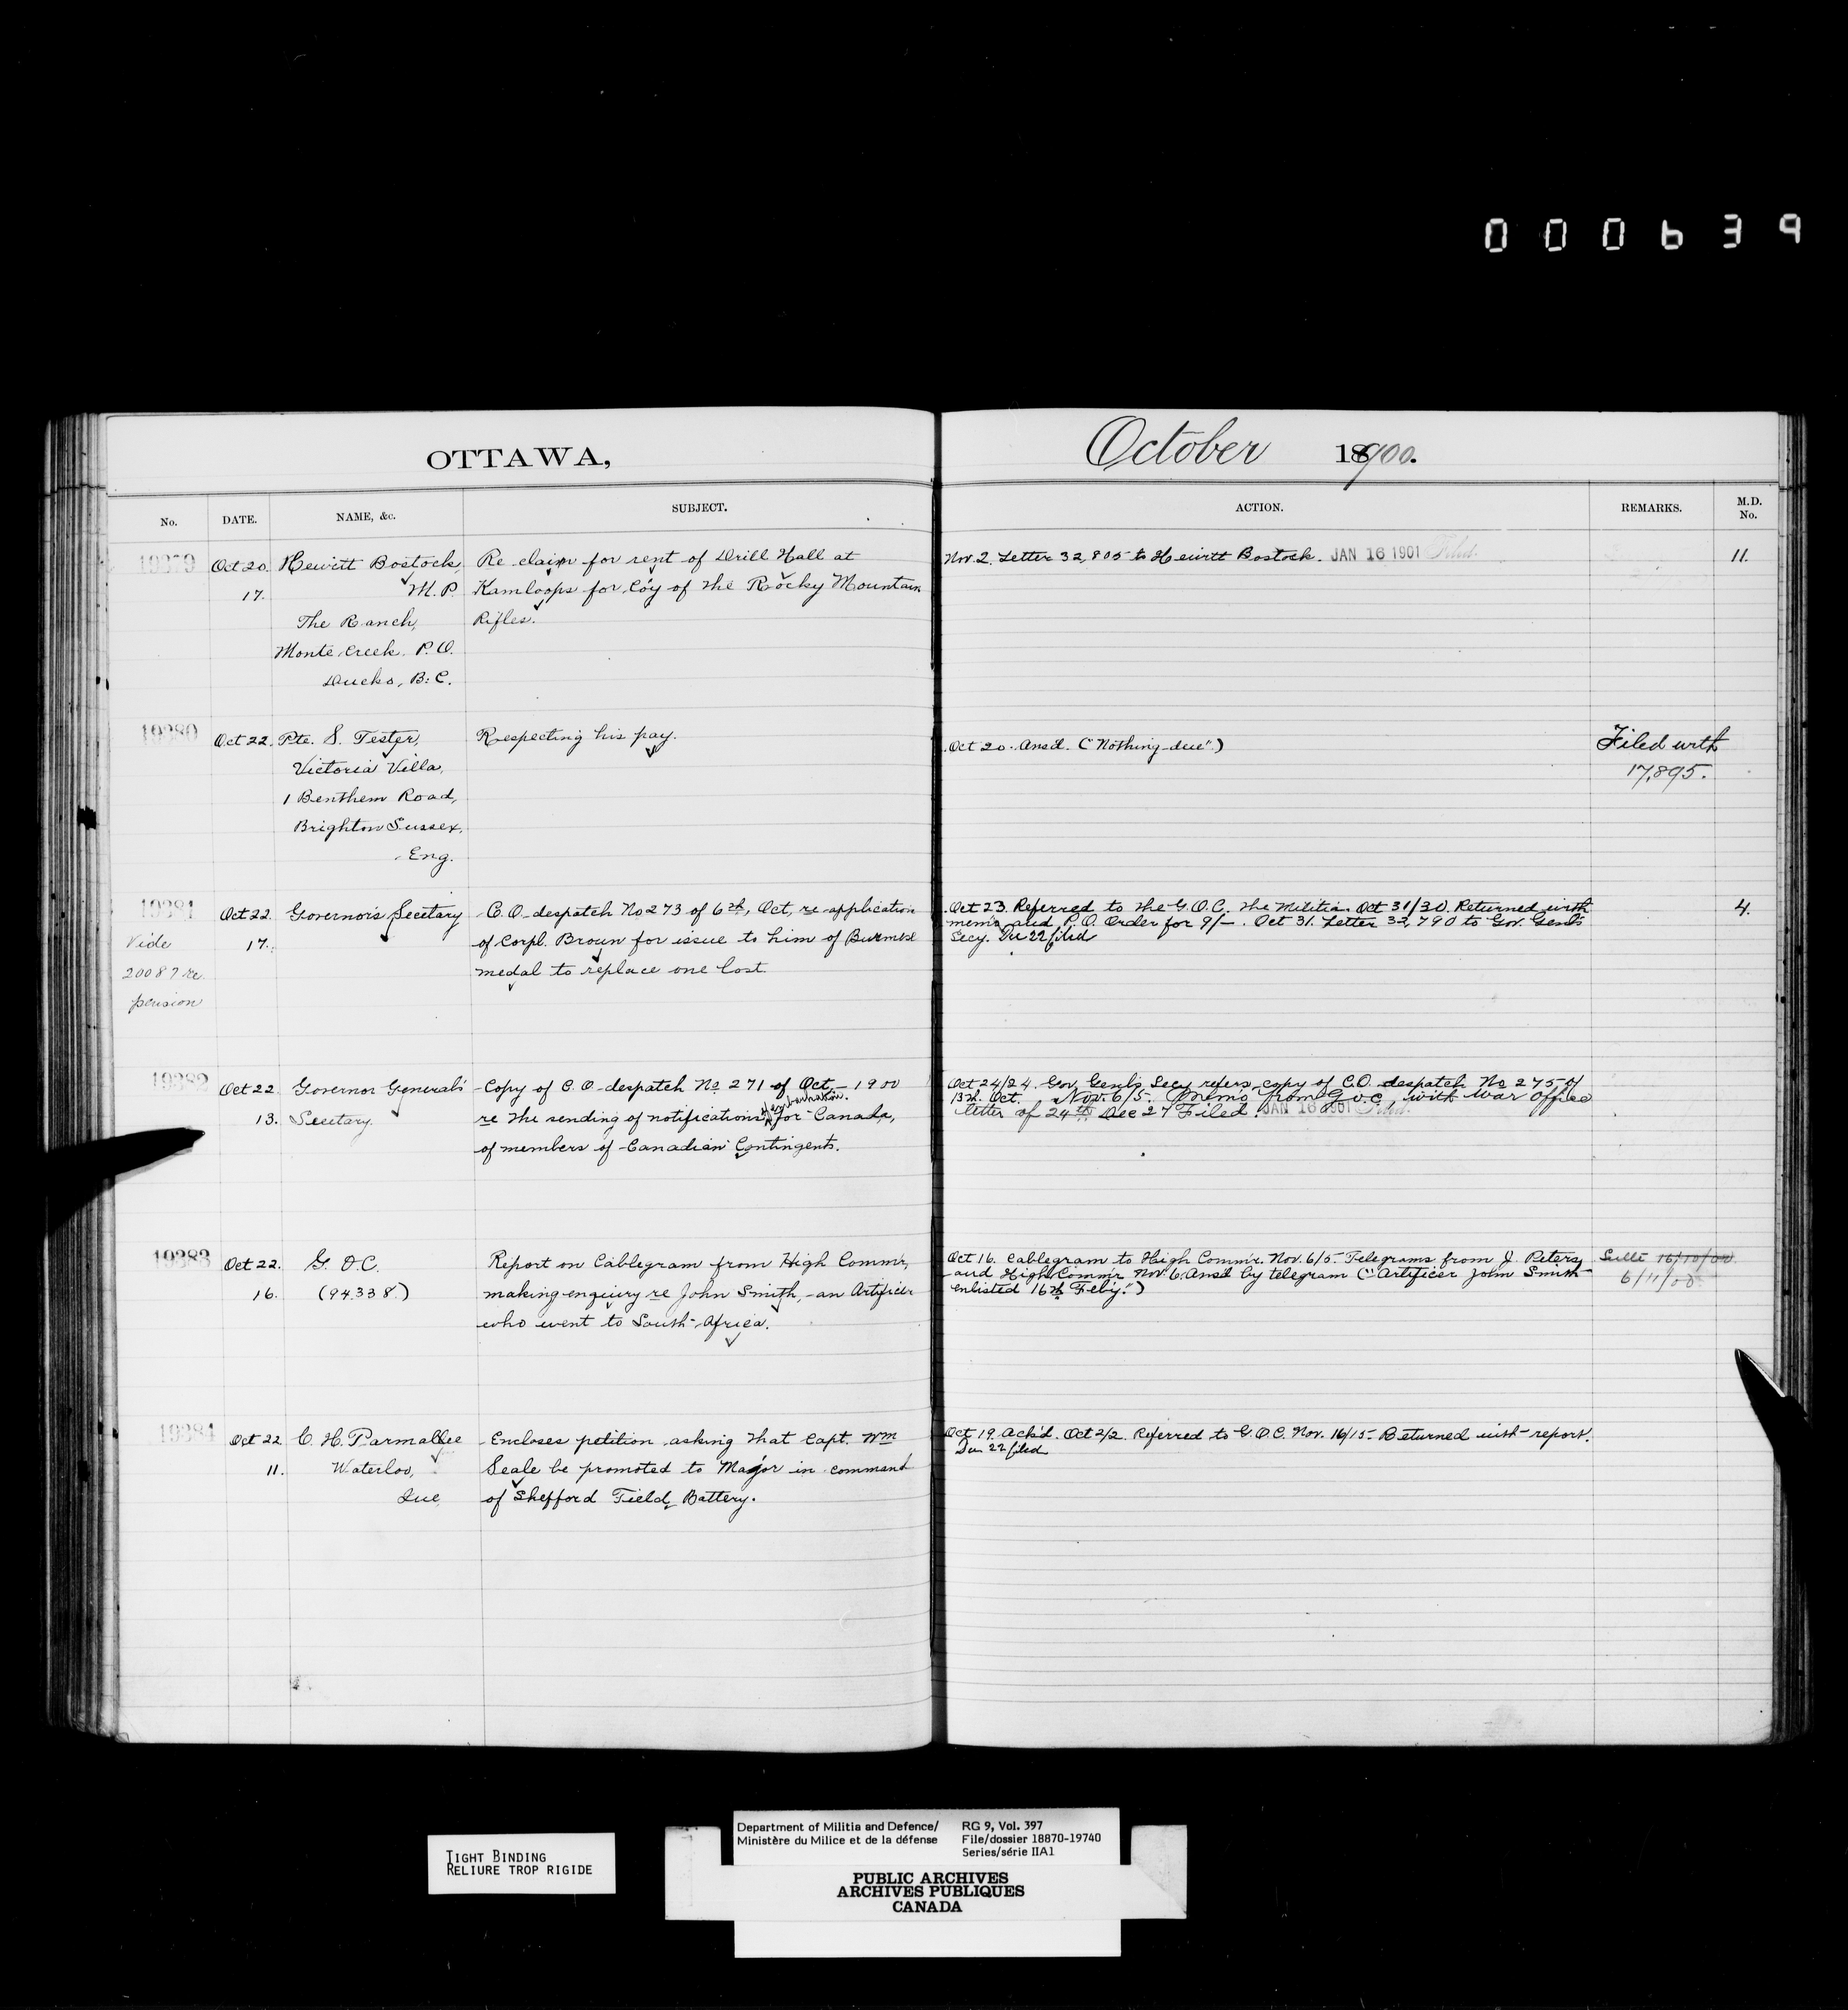 000639
OTTAWA,
October 1900.
No. DATE. NAME, &c. SUBJECT. ACTION. REMARKS. M.D. No.
19379 Oct 20. Hewitt Bostock, Re claim for rent of Drill Hall at Nov. 2. Letter 32,805 to Hewitt Bostock. JAN 16 1901 Filed. 11.
17. M.P. Kamloops for Co'y of the Rocky Mountain
The Ranch, Rifles.
Monte Creek P.O.
Ducks, B.C.
19380 Oct 22. Pte. S. Tester, Respecting his pay. Oct 20. Ansd. ("Nothing due") Filed with
Victoria Villa, 17,895.
1 Benthem Road,
Brighton Sussex,
Eng.
19381 Oct 22. Governor's Secetary C.O. despatch No 273 of 6th, Oct, re application Oct 23. Referred to the G.O.C. the Militia. Oct 31/30. Returned with 4.
Vide 17. of Corpl. Broun for issue to him of Burmese memo and P.O. Order for 9/-. Oct 31. Letter 32,790 to Gov. Genl's
20087 re medal to replace one lost. Secy. Dec 22 filed
pension
19382 Oct 22 Governor General's Copy of C.O. despatch No 271 of Oct, 1900 Oct 24/24. Gov. Genl's Secy refers copy of C.O. despatch No 275 of
13. Secetary. re the sending of notifications, for Canada, 13th. Oct. Nov. 6/5. Memo from G.O.C. with War Office
of members of Canadian Contingents. letter of 24th Dec 27 Filed. JAN 16 1901 Filed.
19383 Oct 22. G.O.C. Report on Cablegram from High Comm'r, Oct 16. Cablegram to High Comm'r. Nov. 6/5. Telegrams from J. Peters 16/10/00
16. (94338.) making enquiry re John Smith, an Artificer and High Comm'r Nov. 6. Ansd by telegram ("Artificer John Smith 6/11/00
who went to South Africa. enlisted 16th Feb'y.")
19384 Oct 22 C. H. Parmallee Encloses petition asking that Capt. Wm Oct 19. Ack'd. Oct 2/2. Referred to G.O.C. Nov. 16/15 Returned with report.
11. Waterloo, Seale be promoted to Major in command Dec 22 filed
Que, of Shefford Field Battery.
TIGHT BINDING
RELIURE TROP RIGIDE
Department of Militia and Defence/ RG 9, Vol. 397
Ministère du Milice et de la défense File/dossier 18870-19740
Series/série IIA1
PUBLIC ARCHIVES
ARCHIVES PUBLIQUES
CANADA